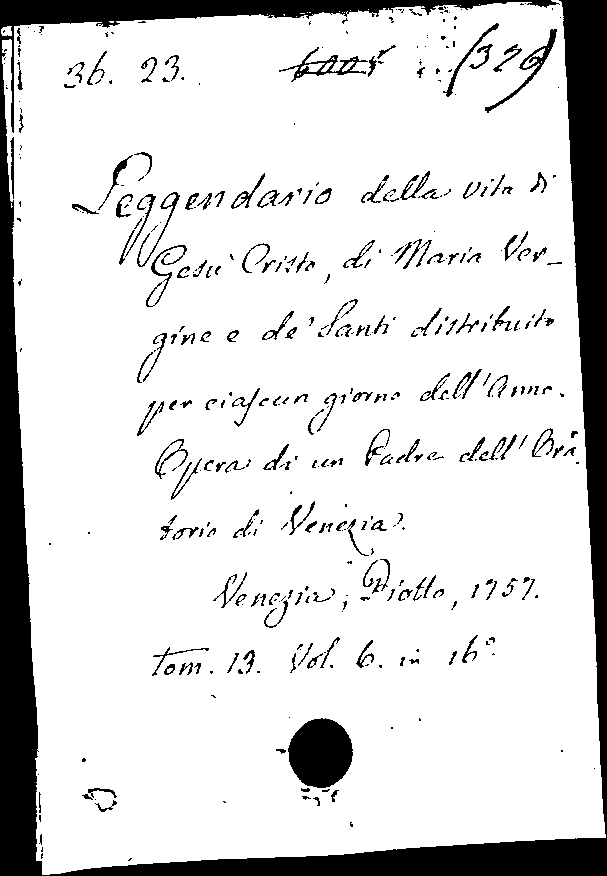 36. 23. 6005 (326)
Leggendario della vita di
Gesù Cristo, di Maria Ver-
gine e de' Santi distribuito
per ciascun giorno dell'Anno.
Opera di un Padre dell'Ora-
torio di Venezia.
Venezia, Piotto, 1757.
tom. 13. Vol. 6. in 16°.